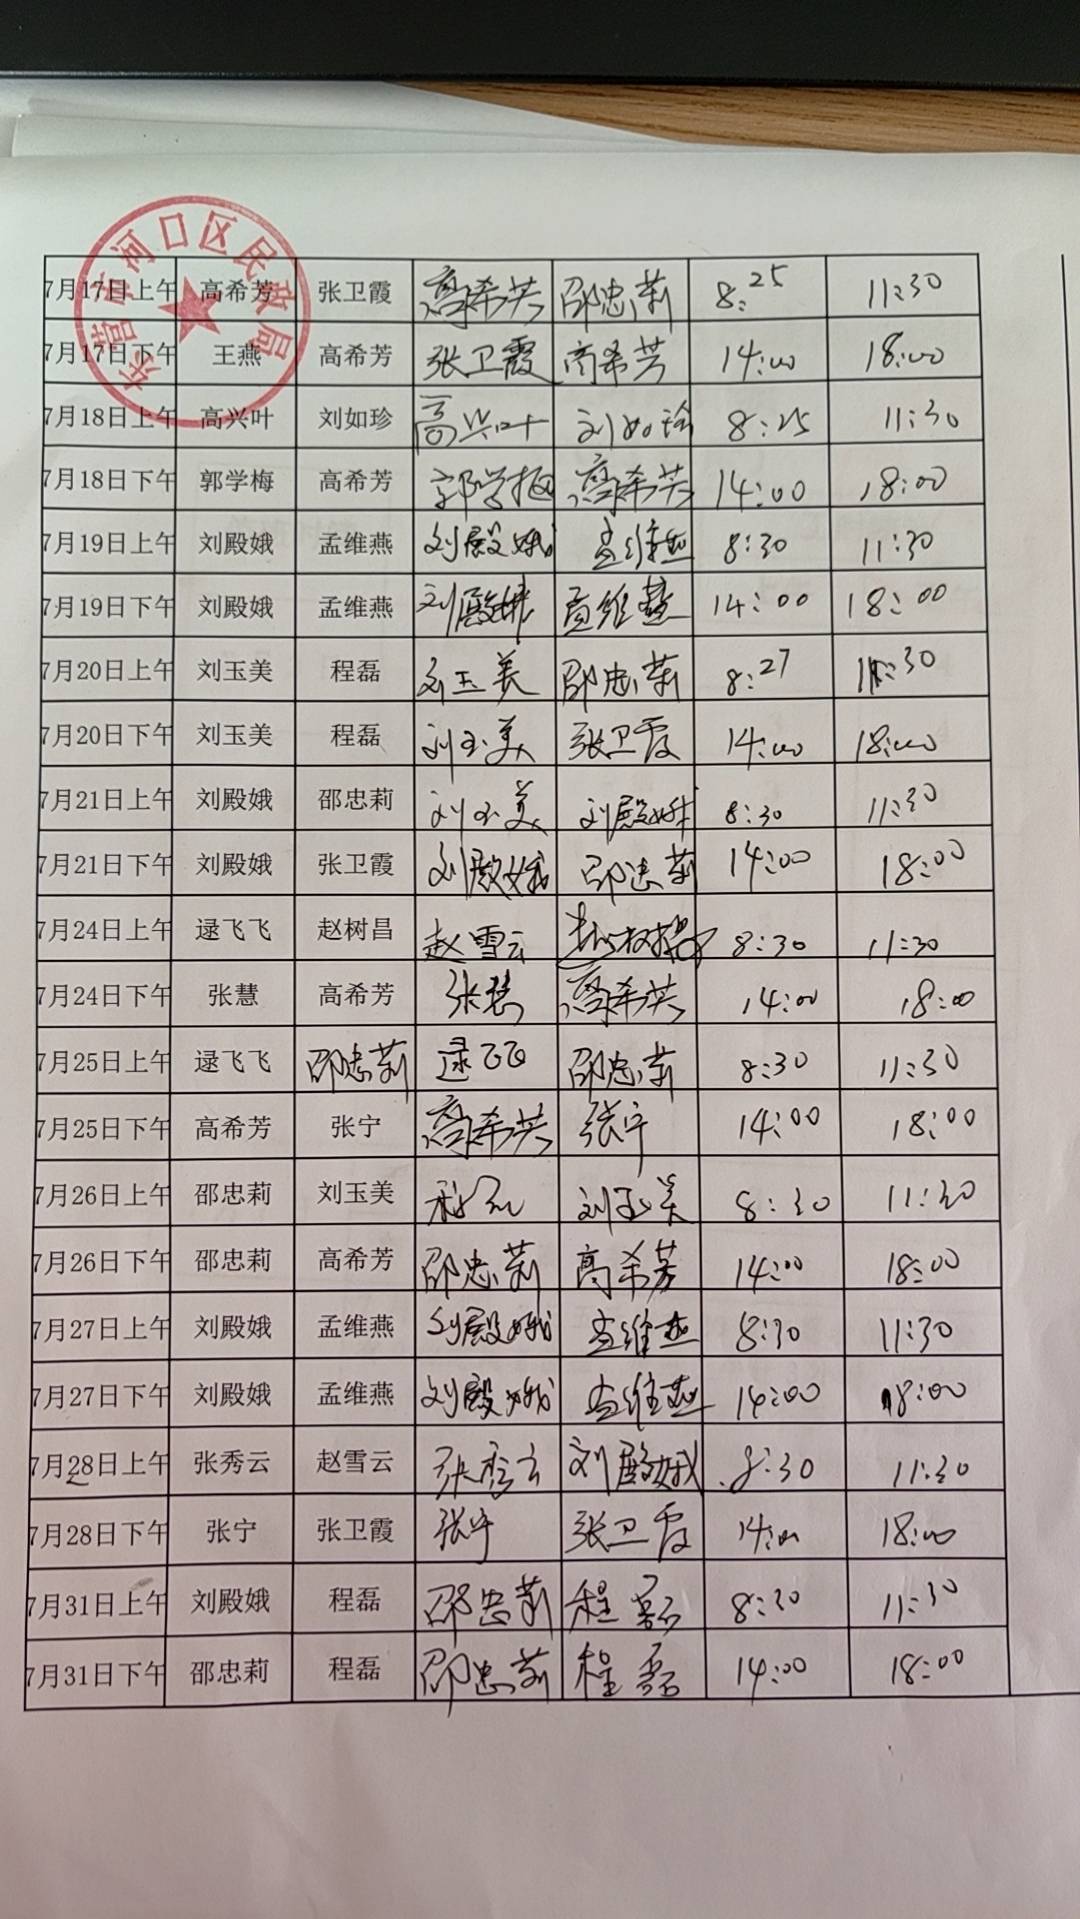 东营市河口区民政局
7月17日上午 高希芳 张卫霞 高希芳 邵忠莉 8:25 11:30
7月17日下午 王燕 高希芳 张卫霞 高希芳 14:00 18:00
7月18日上午 高兴叶 刘如珍 高兴叶 刘如珍 8:25 11:30
7月18日下午 郭学梅 高希芳 郭学梅 高希芳 14:00 18:00
7月19日上午 刘殿娥 孟维燕 刘殿娥 孟维燕 8:30 11:30
7月19日下午 刘殿娥 孟维燕 刘殿娥 孟维燕 14:00 18:00
7月20日上午 刘玉美 程磊 刘玉美 邵忠莉 8:27 11:30
7月20日下午 刘玉美 程磊 刘玉美 张卫霞 14:00 18:00
7月21日上午 刘殿娥 邵忠莉 刘玉美 刘殿娥 8:30 11:30
7月21日下午 刘殿娥 张卫霞 刘殿娥 邵忠莉 14:00 18:00
7月24日上午 逯飞飞 赵树昌 赵雪云 8:30 11:30
7月24日下午 张慧 高希芳 张慧 高希芳 14:00 18:00
7月25日上午 逯飞飞 邵忠莉 逯飞飞 邵忠莉 8:30 11:30
7月25日下午 高希芳 张宁 高希芳 张宁 14:00 18:00
7月26日上午 邵忠莉 刘玉美 刘玉美 8:30 11:30
7月26日下午 邵忠莉 高希芳 邵忠莉 高希芳 14:00 18:00
7月27日上午 刘殿娥 孟维燕 刘殿娥 孟维燕 8:30 11:30
7月27日下午 刘殿娥 孟维燕 刘殿娥 孟维燕 14:00 18:00
7月28日上午 张秀云 赵雪云 张秀云 刘殿娥 8:30 11:30
7月28日下午 张宁 张卫霞 张宁 张卫霞 14:00 18:00
7月31日上午 刘殿娥 程磊 邵忠莉 程磊 8:30 11:30
7月31日下午 邵忠莉 程磊 邵忠莉 程磊 14:00 18:00